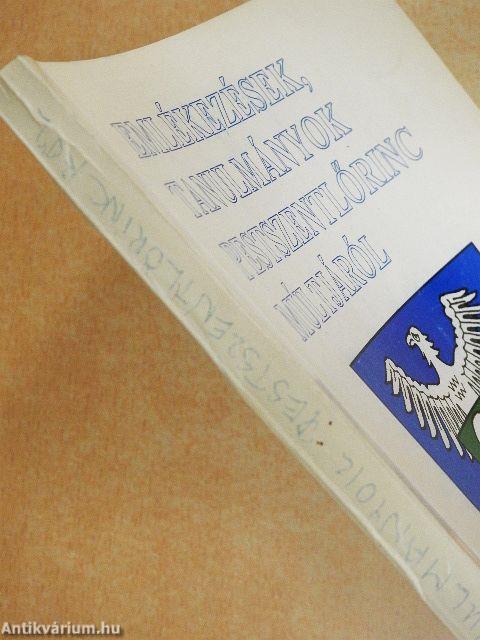 EMLÉKEZÉSEK,
TANULMÁNYOK
PESTSZENTLŐRINC
MÚLTJÁRÓL
PESTSZENTLŐRINC
Antikvárium.hu